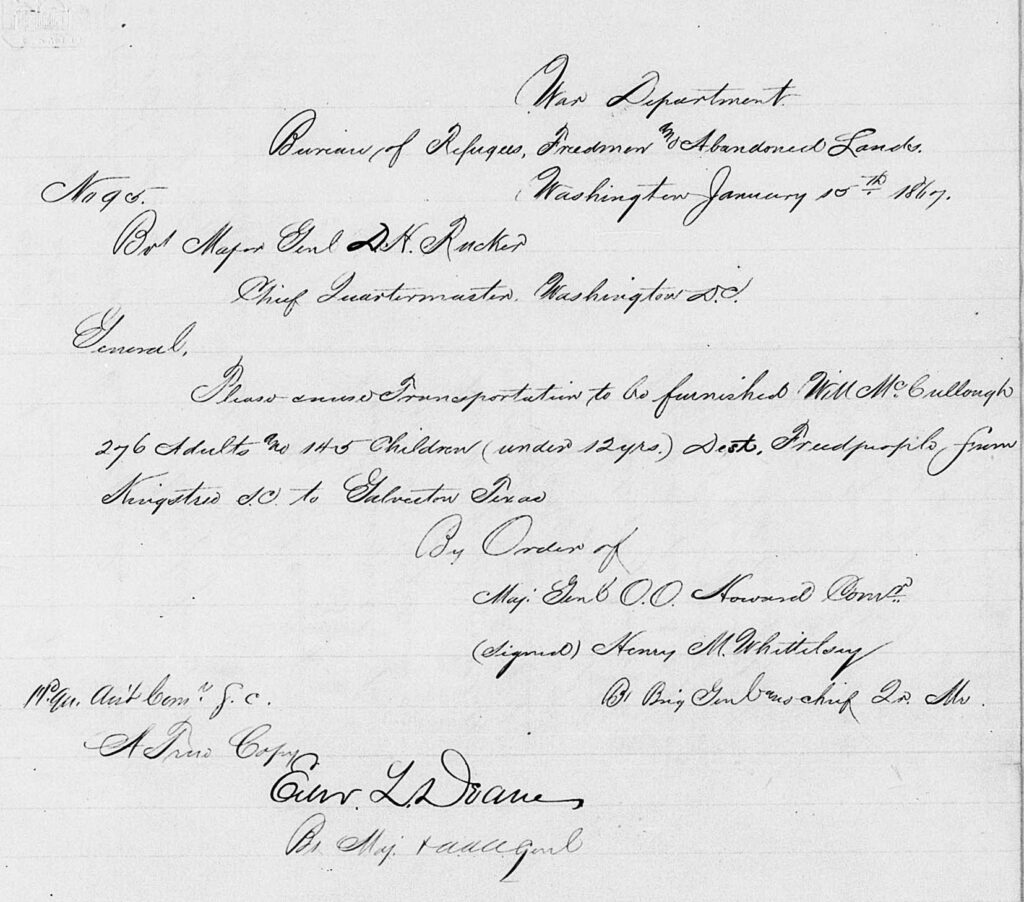 War Department.
Bureau, of Refugees, Freedmen and Abandoned Lands.
No 95.
Washington January 15th 1867.
Bvt Major Genl D.H. Rucker
Chief Quartermaster. Washington D.C.
General,
Please cause Transportation to be furnished Will McCullough
276 Adults and 145 Children (under 12 yrs.) Dest. Freedpeople, from
Kingstree S.C. to Galveston Texas
By Order of
Maj. Genl O.O. Howard Comr.
(signed) Henry M. Whittelsey
Bt Brig Genl and chief Qr. Mr.
Asst Comr S.C.
A True Copy
Edw. L. Deane
Bt. Maj. + AAAGenl